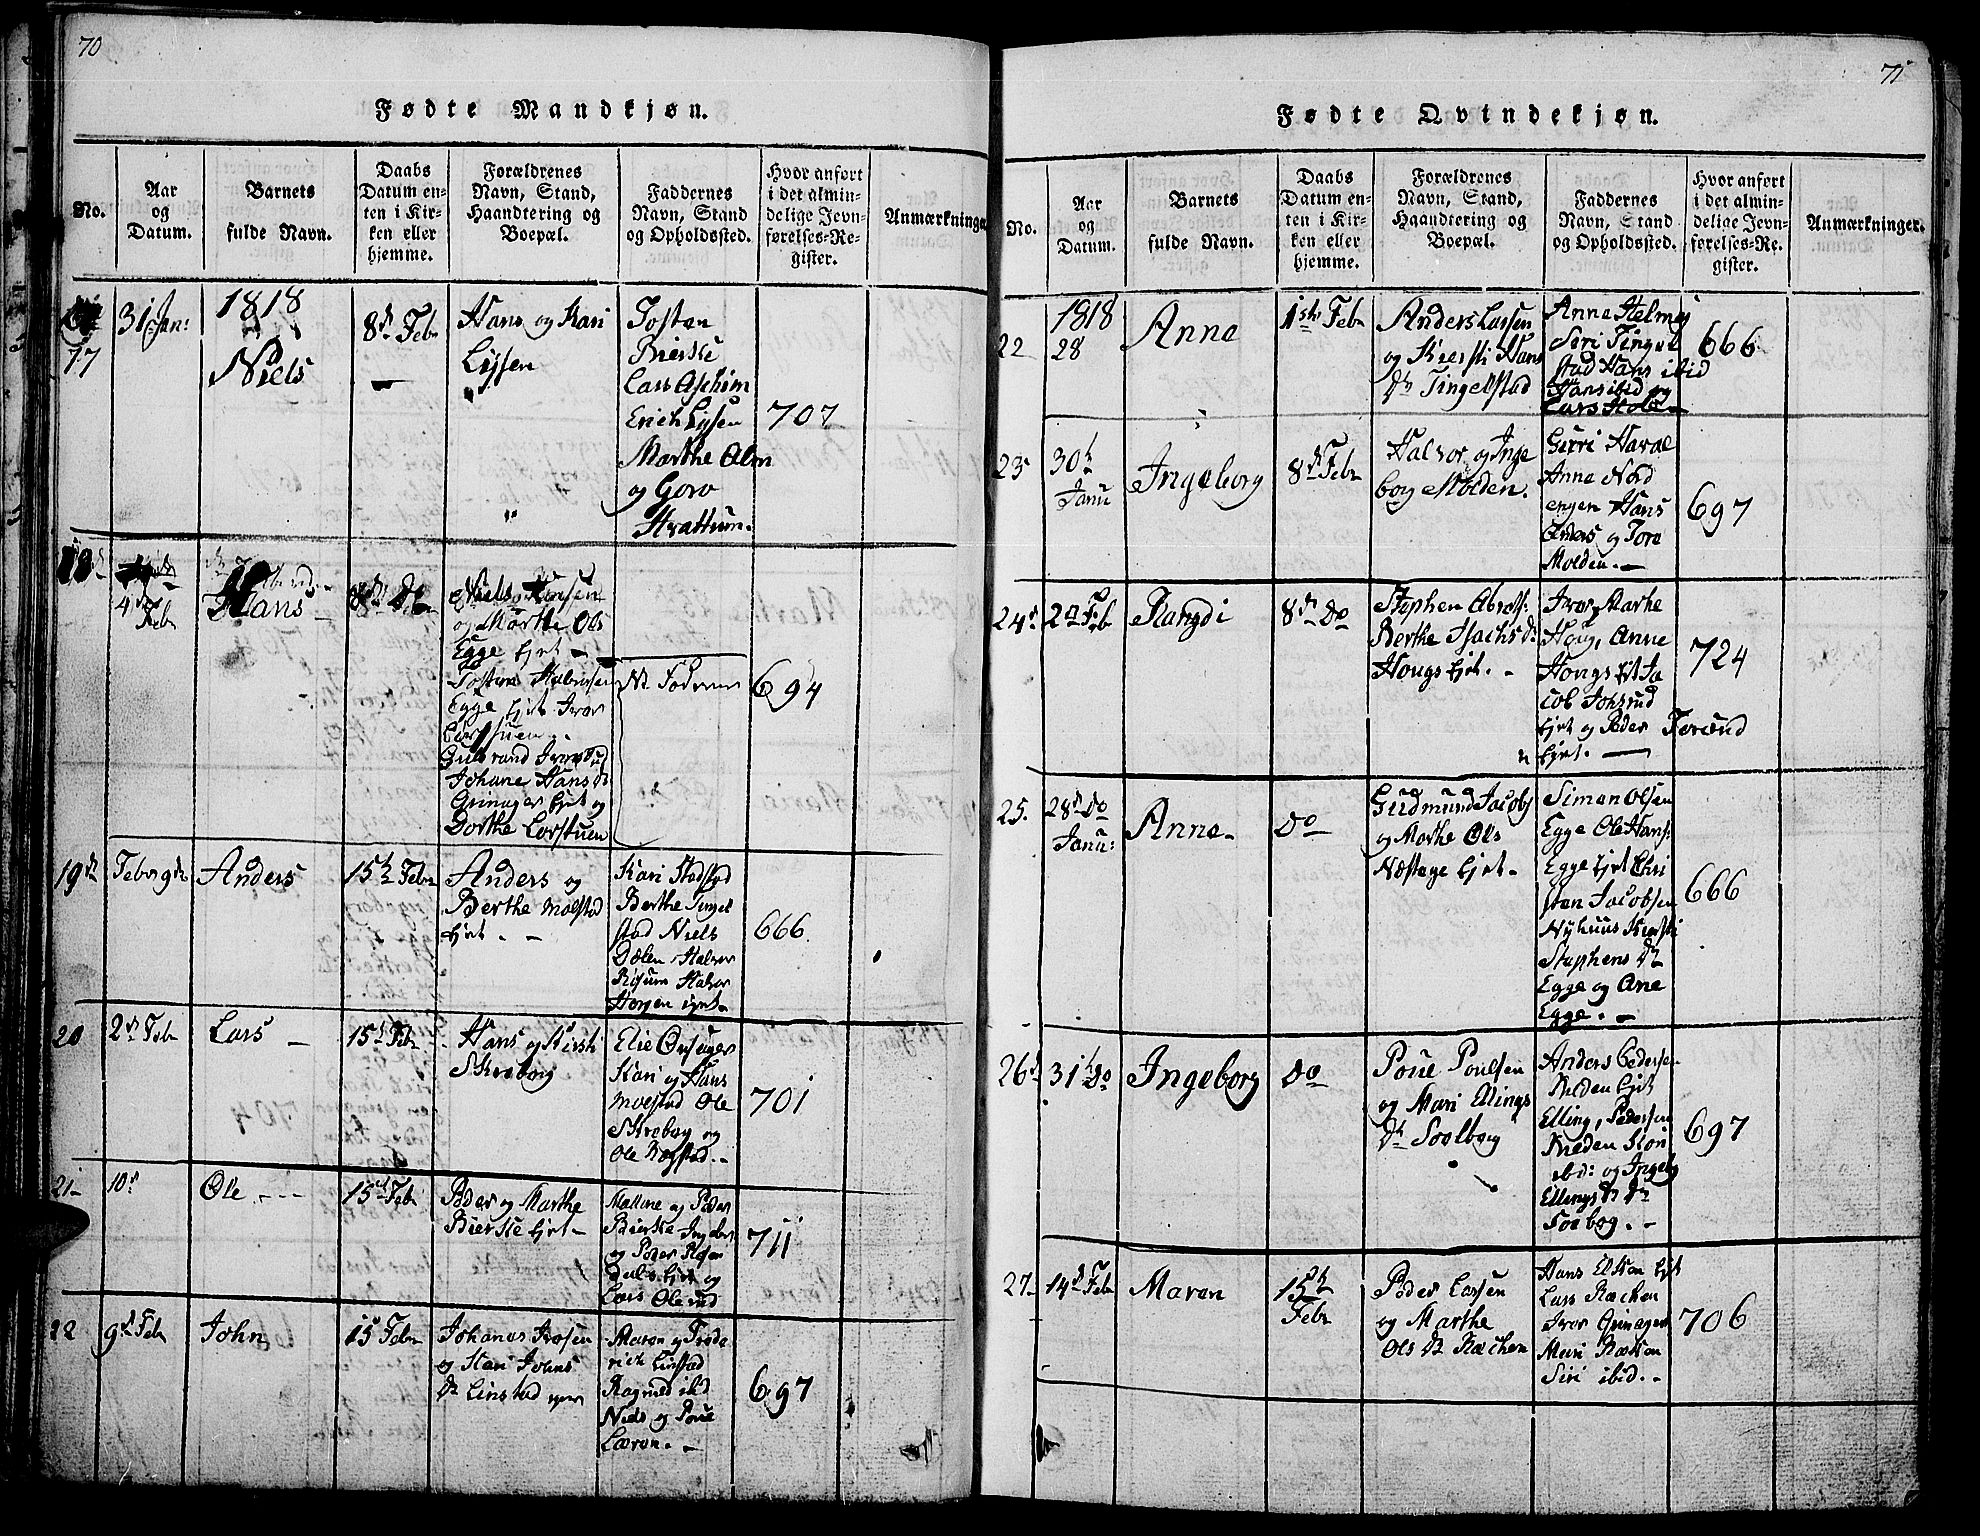 70
Fødte Mandkjøn.
No.
Aar
og
Datum.
Barnets
fulde Navn.
Daabs
Datum en-
ten i Kir-
ken eller
hjemme.
Forældrenes
Navn, Stand,
Haandtering og
Boepæl.
Faddernes
Navn, Stand
og Opholdssted.
Hvor anført
i det almin-
delige Jevn-
førelses-Re-
gister.
Anmærkninger.
17
31 Jan:
1818
Niels
8de Febr
Hans og Kari
Lysen
Tosten
Bierke
Lars Aschim
Erich Lysen
Marthe Alm
og Goro
Strattum.
707
18
4
Febr
Hans
8de Do
Niels Hansen
og Marthe Ols
Egge Ejet
Tosten Halvorsen
Egge Ejet Iver
Gulbrand
Johane Hans dr
Grinager Ejet og
Dorthe Lorstuen
694
19de
Anders
15de Febr
Anders og
Berthe Molstad
Ejet
Kari Stadstad
Berthe Tingel
stad Niels
Dælen Halvor
Risum Halvor
Horgen
666
20
2de Febr
Lars
15de Febr
Hans og Kirsti
Skreberg
Elie Onsager
Kari og Hans
Molstad Ole
Skreberg og
Ole
701
21
10
Ole
15de Febr
Peder og Marthe
Bierke Ejet
og Peder
Bierke
og Peder
Ejet og
Lars Olerud
711
22
9de Febr
John
15 Febr
Johanes
og Kari Johns
dr Linstad
Maren og Frede
rich Linstad
ibid
Niels og Poul
Læren.
697
71
Fødte Qvindekjøn.
No.
Aar
og
Datum.
Barnets
fulde Navn.
Daabs
Datum en-
ten i Kir-
ken eller
hjemme.
Forældrenes
Navn, Stand,
Haandtering og
Boepæl.
Faddernes
Navn, Stand
og Opholdssted.
Hvor anført
i det almin-
delige Jevn-
førelses-Re-
gister.
Anmærkninger.
22
1818
28
Anne
1ste Febr
Anders Larsen
og Kiersti Hans
dr Tingelstad
Anne Helmey
Siri Tingel
stad Hans ibid
Hans ibid og
Lars
666
23
30
Janu
Ingeborg
8de Febr
Halvor og Inge
borg Molden.
Anne Nord
engen Hans
Anders og Tore
Molden.
697
24
2den Feb
Rangdi
8de Do
Stephen
Berthe Isachs dr
Hougs Ejet.
Iver, Marhe
Houg, Anne
Hougs Ejt Ja
cob
Ejet og Peder
Ejet.
724
25.
28de Do
Janu:
Anne
Do
Gudmund Jacobs
og Marthe Ols
Næstege Ejet
Simen Olsen
Egge Ole Hans:
Egge Ejet Chri
sten Jacobsen
Nyhuus Kirsti
Stephens dr
Egge og Ane
Egge.
666
26
31 Do
Ingeborg
Do
Poul Poulsen
og Mari Ellings
dr Soelberg
Anders Pedersen
Ejet
Elling Pedersen
Kari
ibid: og Ingeb
Ellings dr
697
27
14de Febr
Maren
15de
Febr
Peder Larsen
og Marthe
Ols dr Rækken
Hans Ejet
Lars Rækken
Iver Grinager
Mari Rækken
Siri ibid.
706